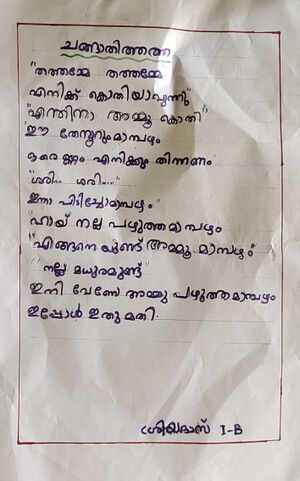 ചങ്ങാതിത്തത്ത
"തത്തമ്മേ തത്തമ്മേ
എനിക്ക് കൊതിയാവുന്നു"
"എന്തിനാ അമ്മൂ കൊതി"
"ഈ തേനൂറുംമാമ്പഴം
ഒരെണ്ണം എനിക്കും തിന്നണം
"ശരി... ശരി...."
ഇന്നാ പിടിച്ചോമാമ്പഴം"
"ഹായ് നല്ല പഴുത്തമാമ്പഴം
"എങ്ങനെയുണ്ട് അമ്മൂ മാമ്പഴം"
"നല്ല മധുരമുണ്ട്"
ഇനി വേണ്ടേ അമ്മു പഴുത്തമാമ്പഴം
ഇപ്പോൾ ഇതുമതി.
ശ്രേയദാസ് I-B